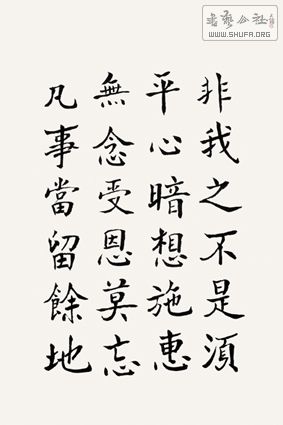 書藝公社
WWW.SHUFA.ORG
非我之不是須
平心暗想施惠
無念受恩莫忘
凡事當留餘地